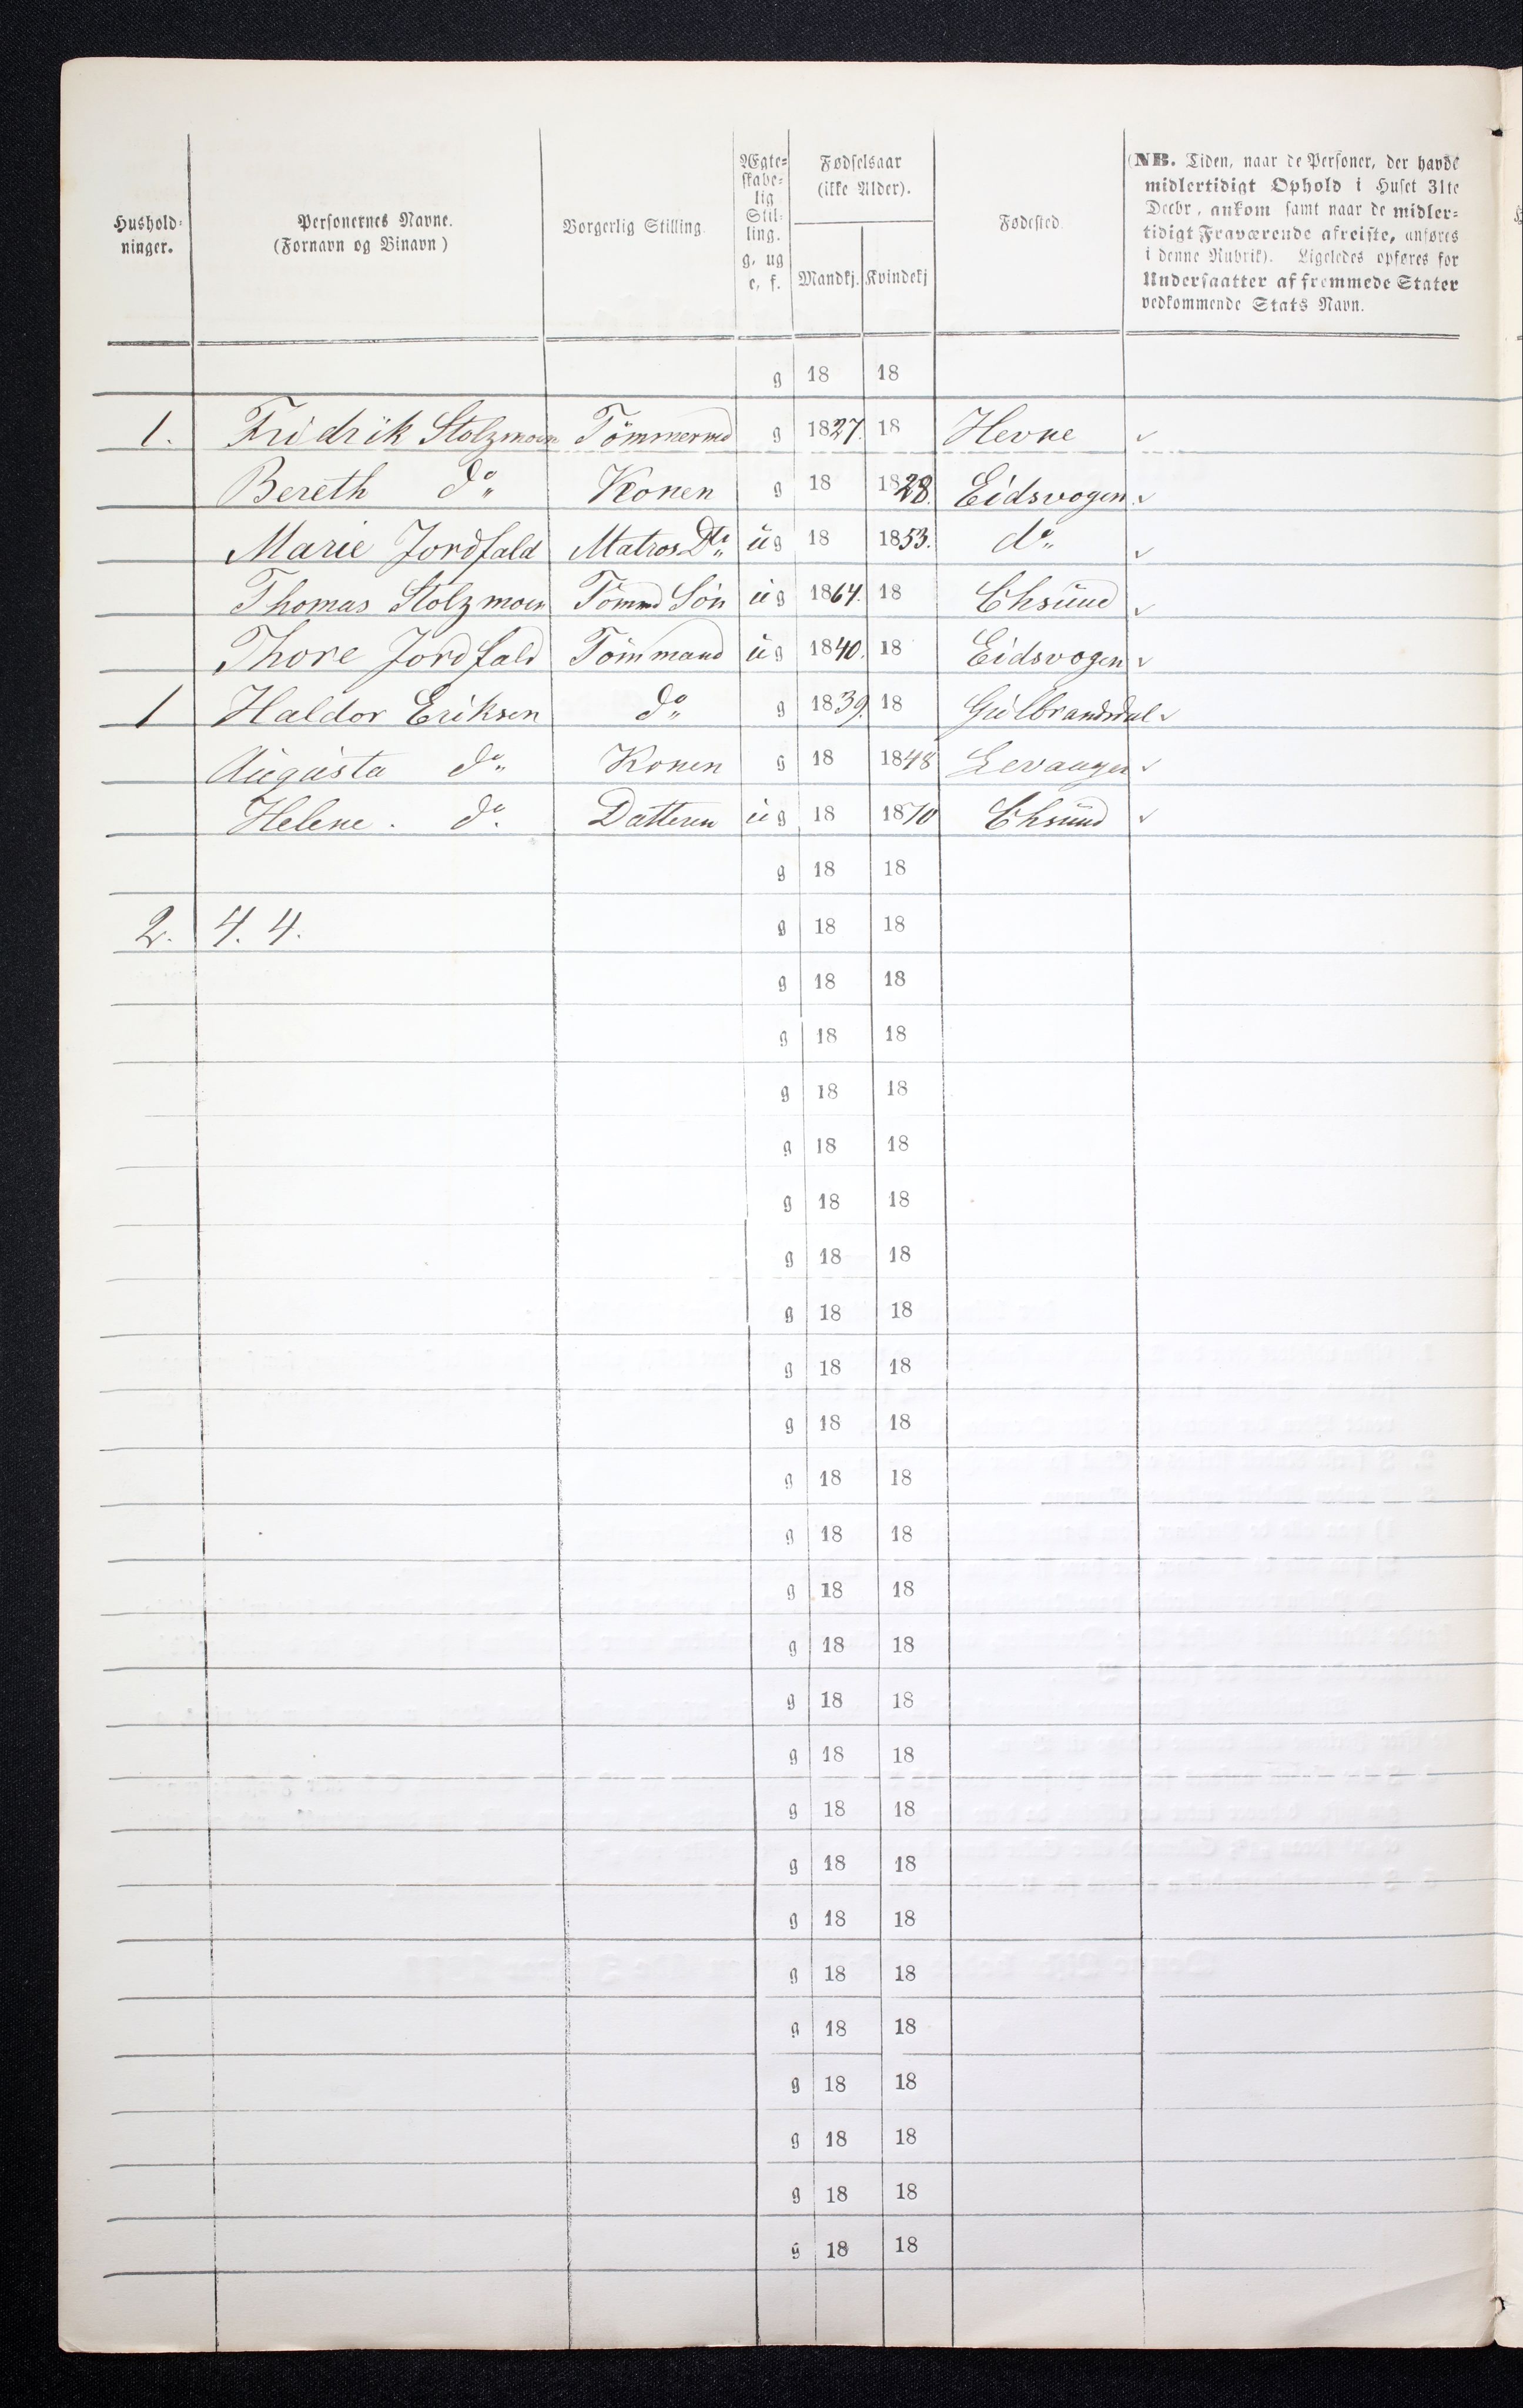 Hushold-
ninger.
Personernes Navne.
(Fornavn og Binavn)
Borgerlig Stilling.
Ægte-
skabe-
lig
Stil-
ling.
g, ug
e, f.
Fødselsaar
(ikke Alder).
Mandkj. Kvindekj
Fødested.
(NB. Tiden, naar de Personer, der havde
midlertidigt Ophold i Huset 31te
Decbr, ankom samt naar de midler-
tidigt Fraværende afreiste, anføres
i denne Rubrik). Ligeledes opføres for
Undersaatter af fremmede Stater
vedkommende Stats Navn.
g 18 18
1. Fridrik Stolzmoen Tömmermd g 1827. 18 Hevne ✓
Bereth do Konen g 18 1828. Eidsvogen ✓
Marie Jordfald Matros Dtr ug 18 1853. do ✓
Thomas Stolzmoen Tömmd Sön ug 1864. 18 Chsund ✓
Thore Jordfald Tömmand ug 1840. 18 Eidsvogen ✓
1 Haldor Eriksen do g 1839. 18 Gulbrandsdal ✓
Augusta do Konen g 18 1848 Levanger ✓
Helene. do. Datteren ug 18 1870 Chsund ✓
g 18 18
2. 4. 4. g 18 18
g 18 18
g 18 18
g 18 18
g 18 18
g 18 18
g 18 18
g 18 18
g 18 18
g 18 18
g 18 18
g 18 18
g 18 18
g 18 18
g 18 18
g 18 18
g 18 18
g 18 18
g 18 18
g 18 18
g 18 18
g 18 18
g 18 18
g 18 18
g 18 18